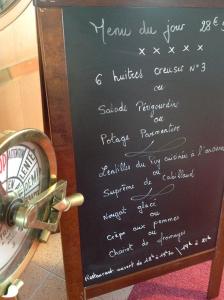 Menu du jour 28€
x x x x x
6 huitres creuses N°3
ou
Salade Périgourdine
ou
Potage Parmentier
Lentilles du Puy cuisinées à l'ancienne
ou
Suprême de Cabillaud
Nougat glacé
ou
crêpe aux pommes
ou
Chariot de fromages
Restaurant ouvert de